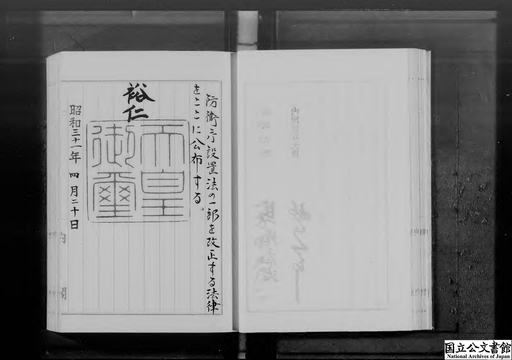 防衛庁設置法の一部を改正する法律
をここに公布する。
裕仁
天皇
御璽
昭和三十一年四月二十日
内閣
国立公文書館
National Archives of Japan